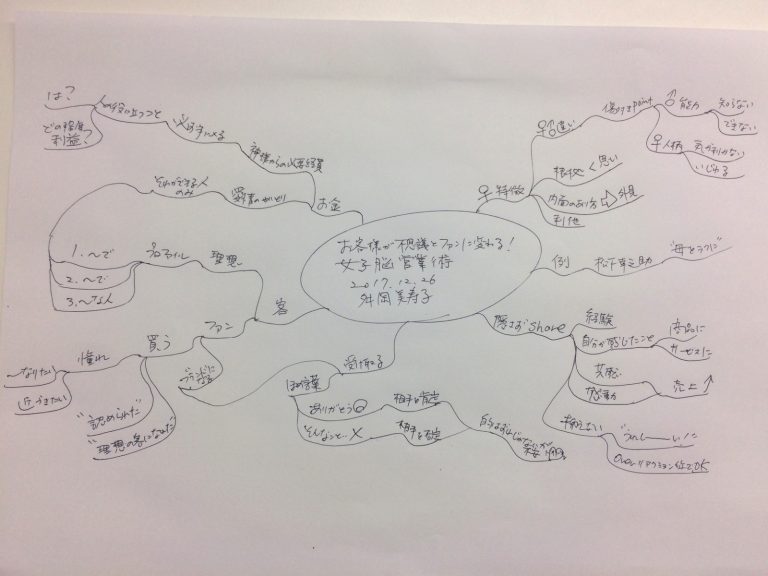 お客様が不思議とファンに変わる!
女子脳営業術
2017.12.26
舛岡美寿子
お金
神様からの必要経費
必死に〆る
人の役に立つこと
は?
どの程度
利益?
それができる人
のみ
客
理想
プロフィール
1.〜で
2.〜で
3.〜な人
ファン
買う
憧れ
〜なりたい
近づきたい
"認められた"
"理想の客になれた"
ブランドに
受け取る
ほめ言葉
ありがとう
相手を肯定
そんなこと…×
相手を否定
隠さずshare
経験
自分が感じたこと
商品に
サービスに
共感
感動
売上↑
"うれしーい!"
Overリアクション位でOK
例
松下幸之助
"母とうつに"
♀特徴
♀♂違い
傷つきPoint
♂能力
知らない
できない
♀人柄
気が利かない
いじわる
根底く思い
内面のあり方⇨外見
利他